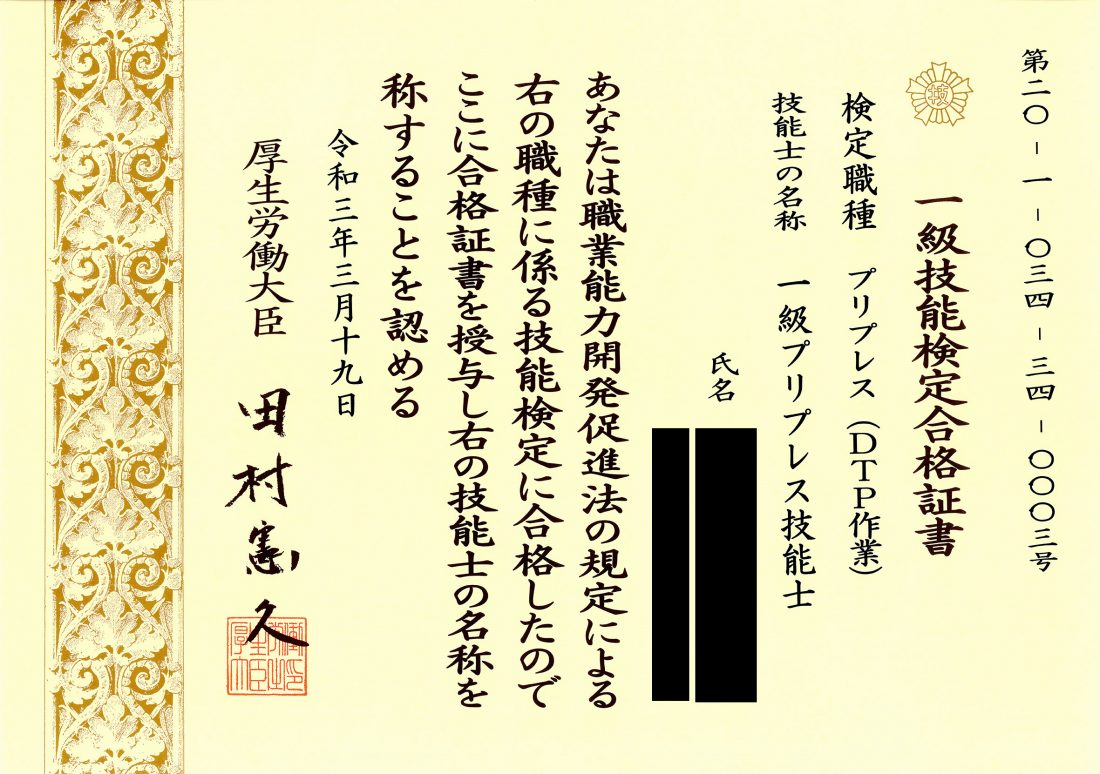 第二〇-一-〇三四-三四-〇〇〇三号
技
一級技能検定合格証書
検定職種 プリプレス（DTP作業）
技能士の名称 一級プリプレス技能士
氏名
あなたは職業能力開発促進法の規定による
右の職種に係る技能検定に合格したので
ここに合格証書を授与し右の技能士の名称を
称することを認める
令和三年三月十九日
厚生労働大臣 田村憲久
厚生労働大臣之印